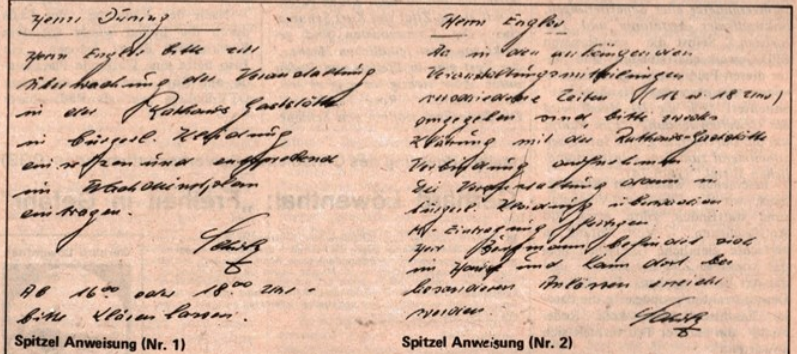 Herrn Düring
Herrn Engler bitte zur
Überwachung der Veranstaltung
in der Rathaus Gaststätte
in bürgerl. Kleidung
einsetzen und entsprechend
im Wachdienstplan
eintragen.
Ab 16⁰⁰ oder 18⁰⁰ Uhr -
bitte klären lassen.
Spitzel Anweisung (Nr. 1)
Herrn Engler
Da in den anhängenden
Veranstaltungsmitteilungen
verschiedene Zeiten (16 u 18 Uhr)
angegeben sind bitte zwecks
Klärung mit der Rathaus-Gaststätte
Verbindung aufnehmen
Die Veranstaltung dann in
bürgerl. Kleidung überwachen
Eintragung fertigen
Herr befindet sich
im und kann dort bei
besonderen Anlässen erreicht
werden
Spitzel Anweisung (Nr. 2)